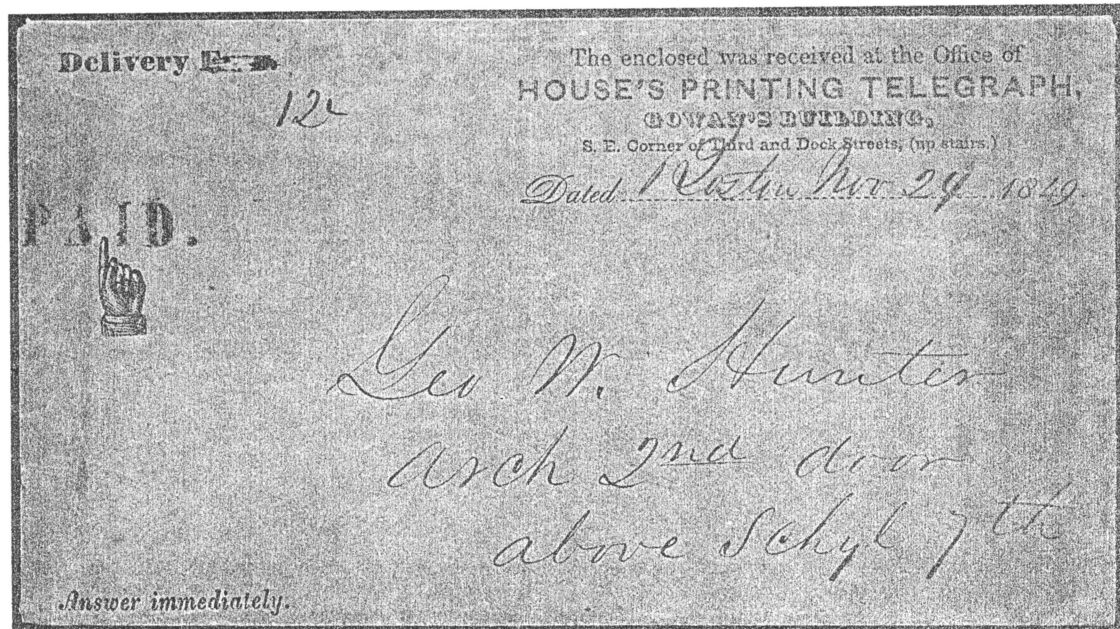 Delivery Free
12c
The enclosed was received at the Office of
HOUSE'S PRINTING TELEGRAPH,
GOWAN'S BUILDING,
S. E. Corner of Third and Dock Streets, (up stairs.)
Dated Boston Nov 29 1849.
PAID.
Geo W. Hunter
Arch 2nd door
above Schyl 7th
Answer immediately.